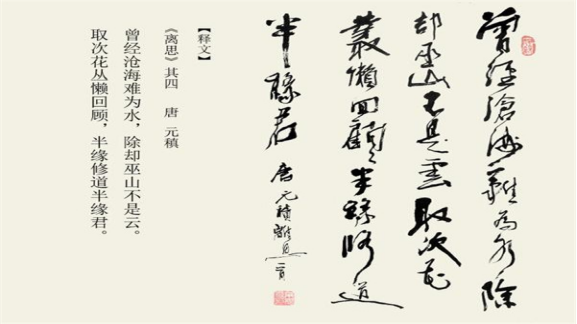 曾经沧海难为水除
却巫山不是云取次花
丛懒回顾半缘修道
半缘君
唐元稹离思一首
【释文】
《离思》其四 唐 元稹
曾经沧海难为水，除却巫山不是云。
取次花丛懒回顾，半缘修道半缘君。